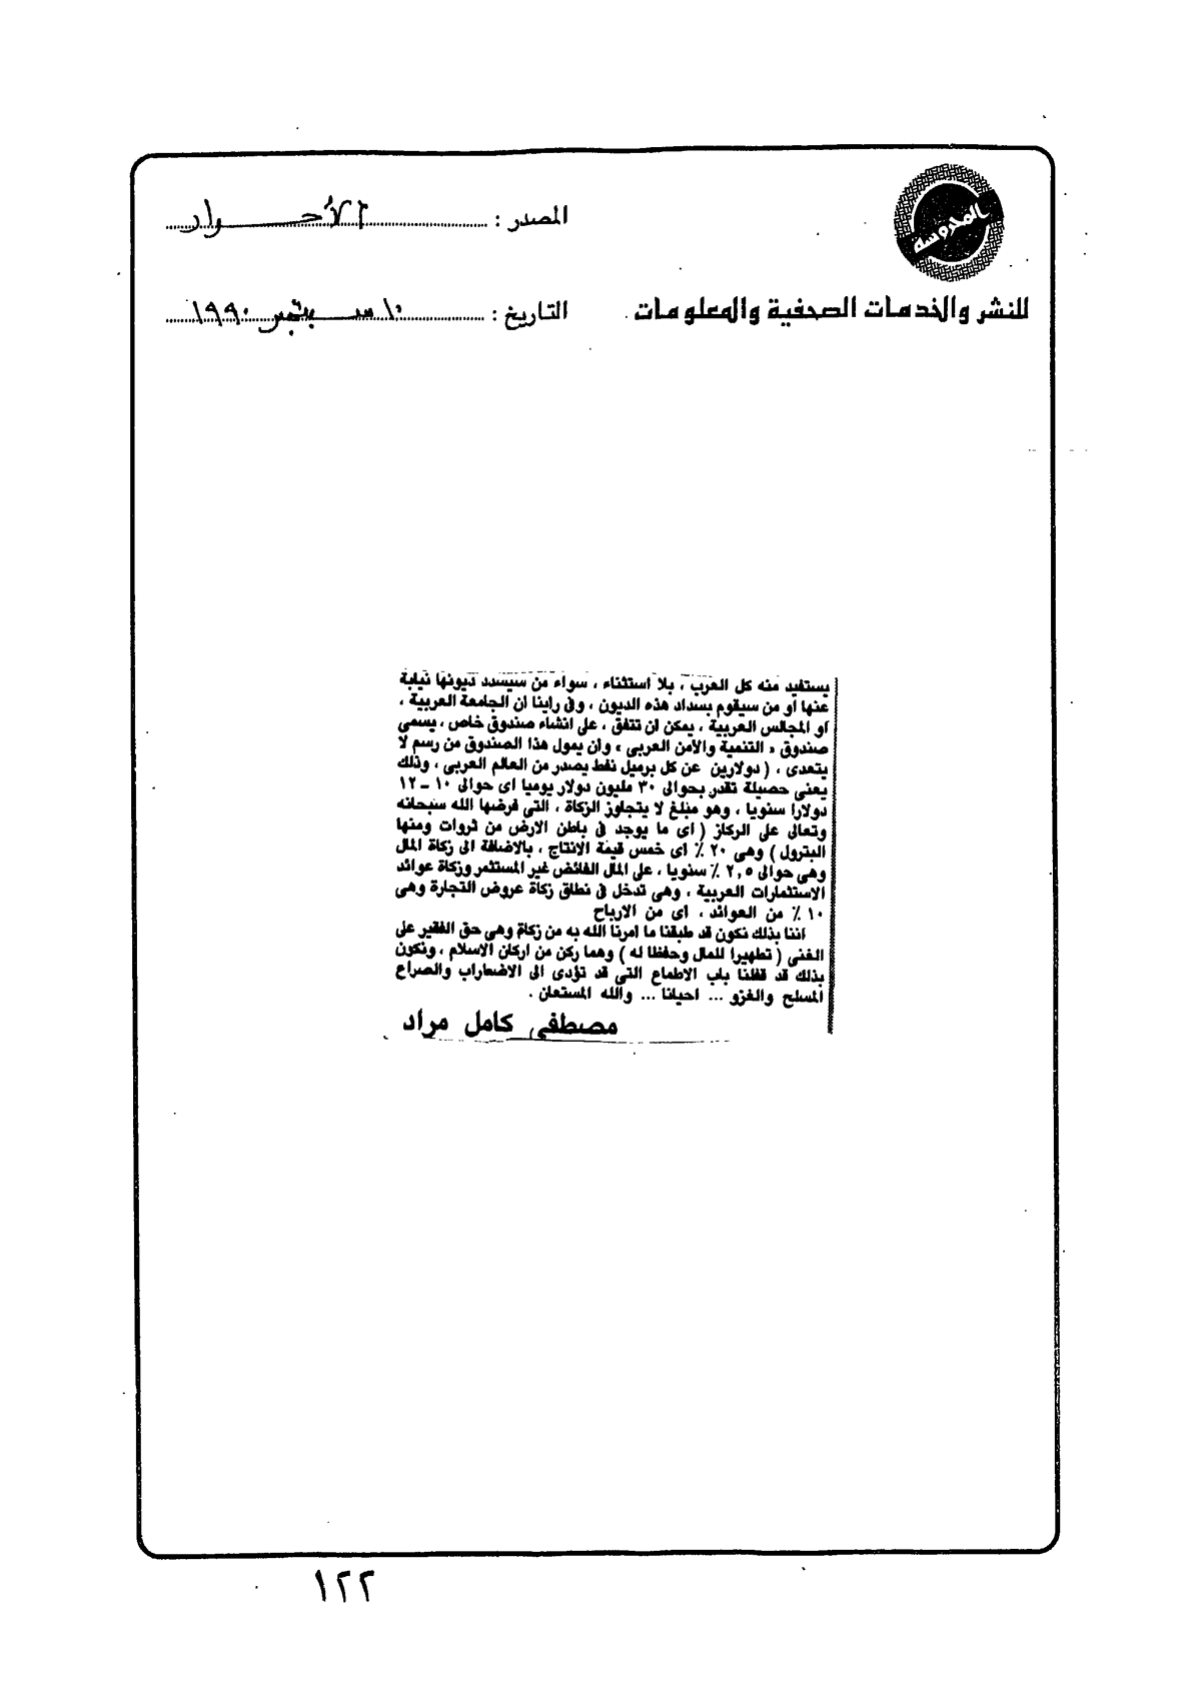 المحروسة
للنشر والخدمات الصحفية والمعلومات
المصدر : الأحرار
التاريخ : ١٠ سبتمبر ١٩٩٠
يستفيد منه كل العرب ، بلا استثناء ، سواء من سيسدد ديونها نيابة
عنها او من سيقوم بسداد هذه الديون ، وفى راينا ان الجامعة العربية ،
او المجالس العربية ، يمكن ان تتفق ، على انشاء صندوق خاص ، يسمى
صندوق « التنمية والأمن العربى » وان يمول هذا الصندوق من رسم لا
يتعدى ، ( دولارين عن كل برميل نفط يصدر من العالم العربى ، وذلك
يعنى حصيلة تقدر بحوالى ٣٠ مليون دولار يوميا اى حوالى ١٠ - ١٢
دولارا سنويا ، وهو مبلغ لا يتجاوز الزكاة ، التى فرضها الله سبحانه
وتعالى على الركاز ( اى ما يوجد فى باطن الارض من ثروات ومنها
البترول ) وهى ٢٠ ٪ اى خمس قيمة الانتاج ، بالاضافة الى زكاة المال
وهى حوالى ٢,٥ ٪ سنويا ، على المال الفائض غير المستثمر وزكاة عوائد
الاستثمارات العربية ، وهى تدخل فى نطاق زكاة عروض التجارة وهى
١٠ ٪ من العوائد ، اى من الارباح
اننا بذلك نكون قد طبقنا ما امرنا الله به من زكاة وهى حق الفقير على
الغنى ( تطهيرا للمال وحفظا له ) وهما ركن من اركان الاسلام ، ونكون
بذلك قد قفلنا باب الاطماع التى قد تؤدى الى الاضطراب والصراع
المسلح والغزو ... احيانا ... والله المستعان .
مصطفى كامل مراد
١٢٢